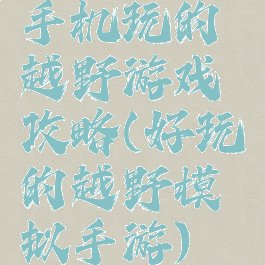 手机玩的
越野游戏
攻略(好玩
的越野模
拟手游)